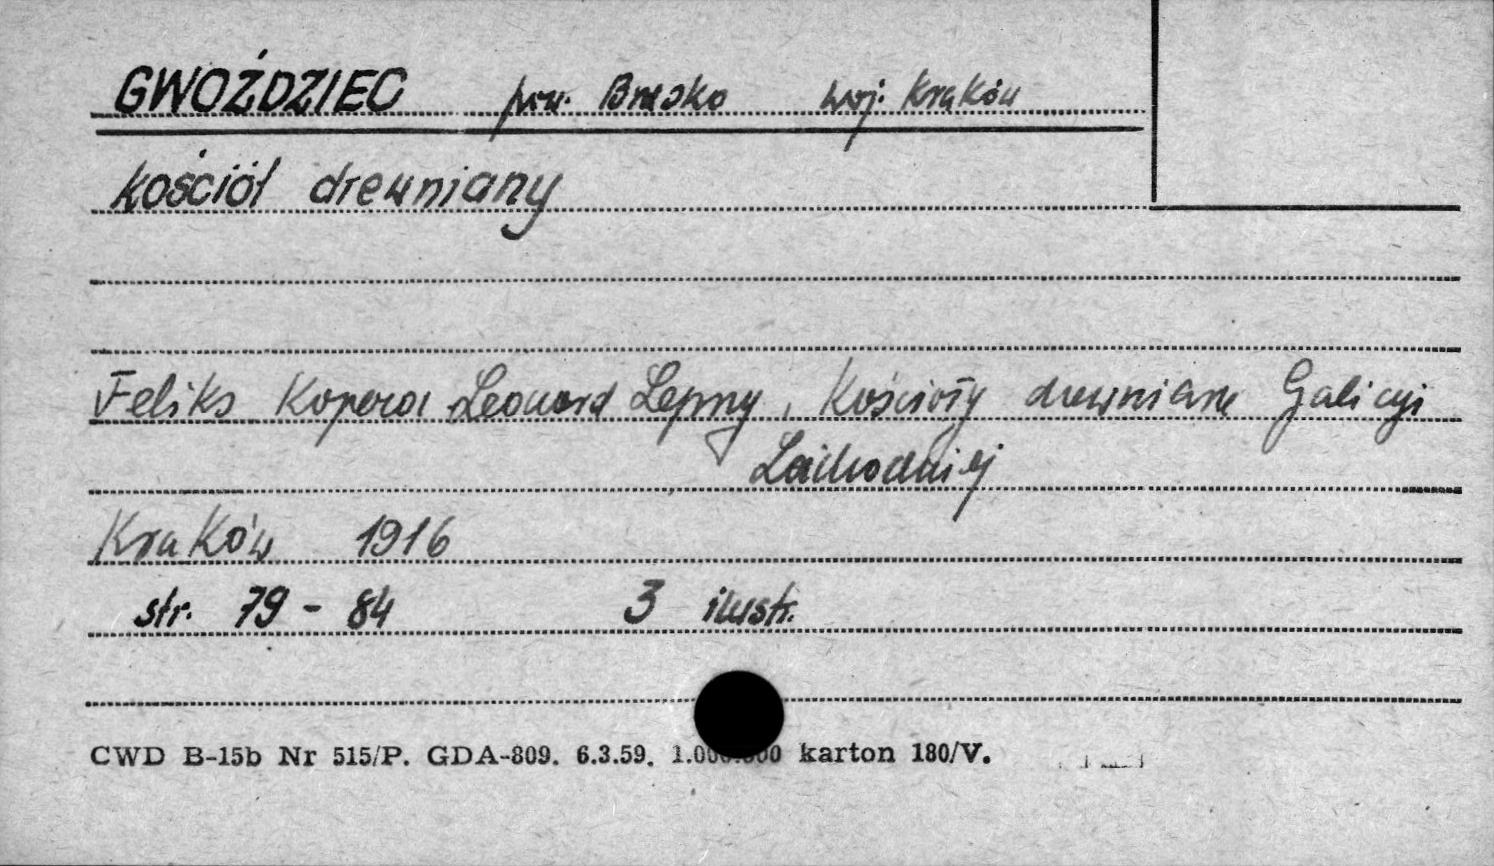 GWOŹDZIEC pow. Brzesko woj. Kraków
kościół drewniany
Feliks Kopera Leonard Lepszy, Kościoły drewniane Galicyi
Zachodniej
Kraków 1916
str. 79 - 84 3 ilustr.
CWD B-15b Nr 515/P. GDA-809. 6.3.59. 1.000.000 karton 180/V.